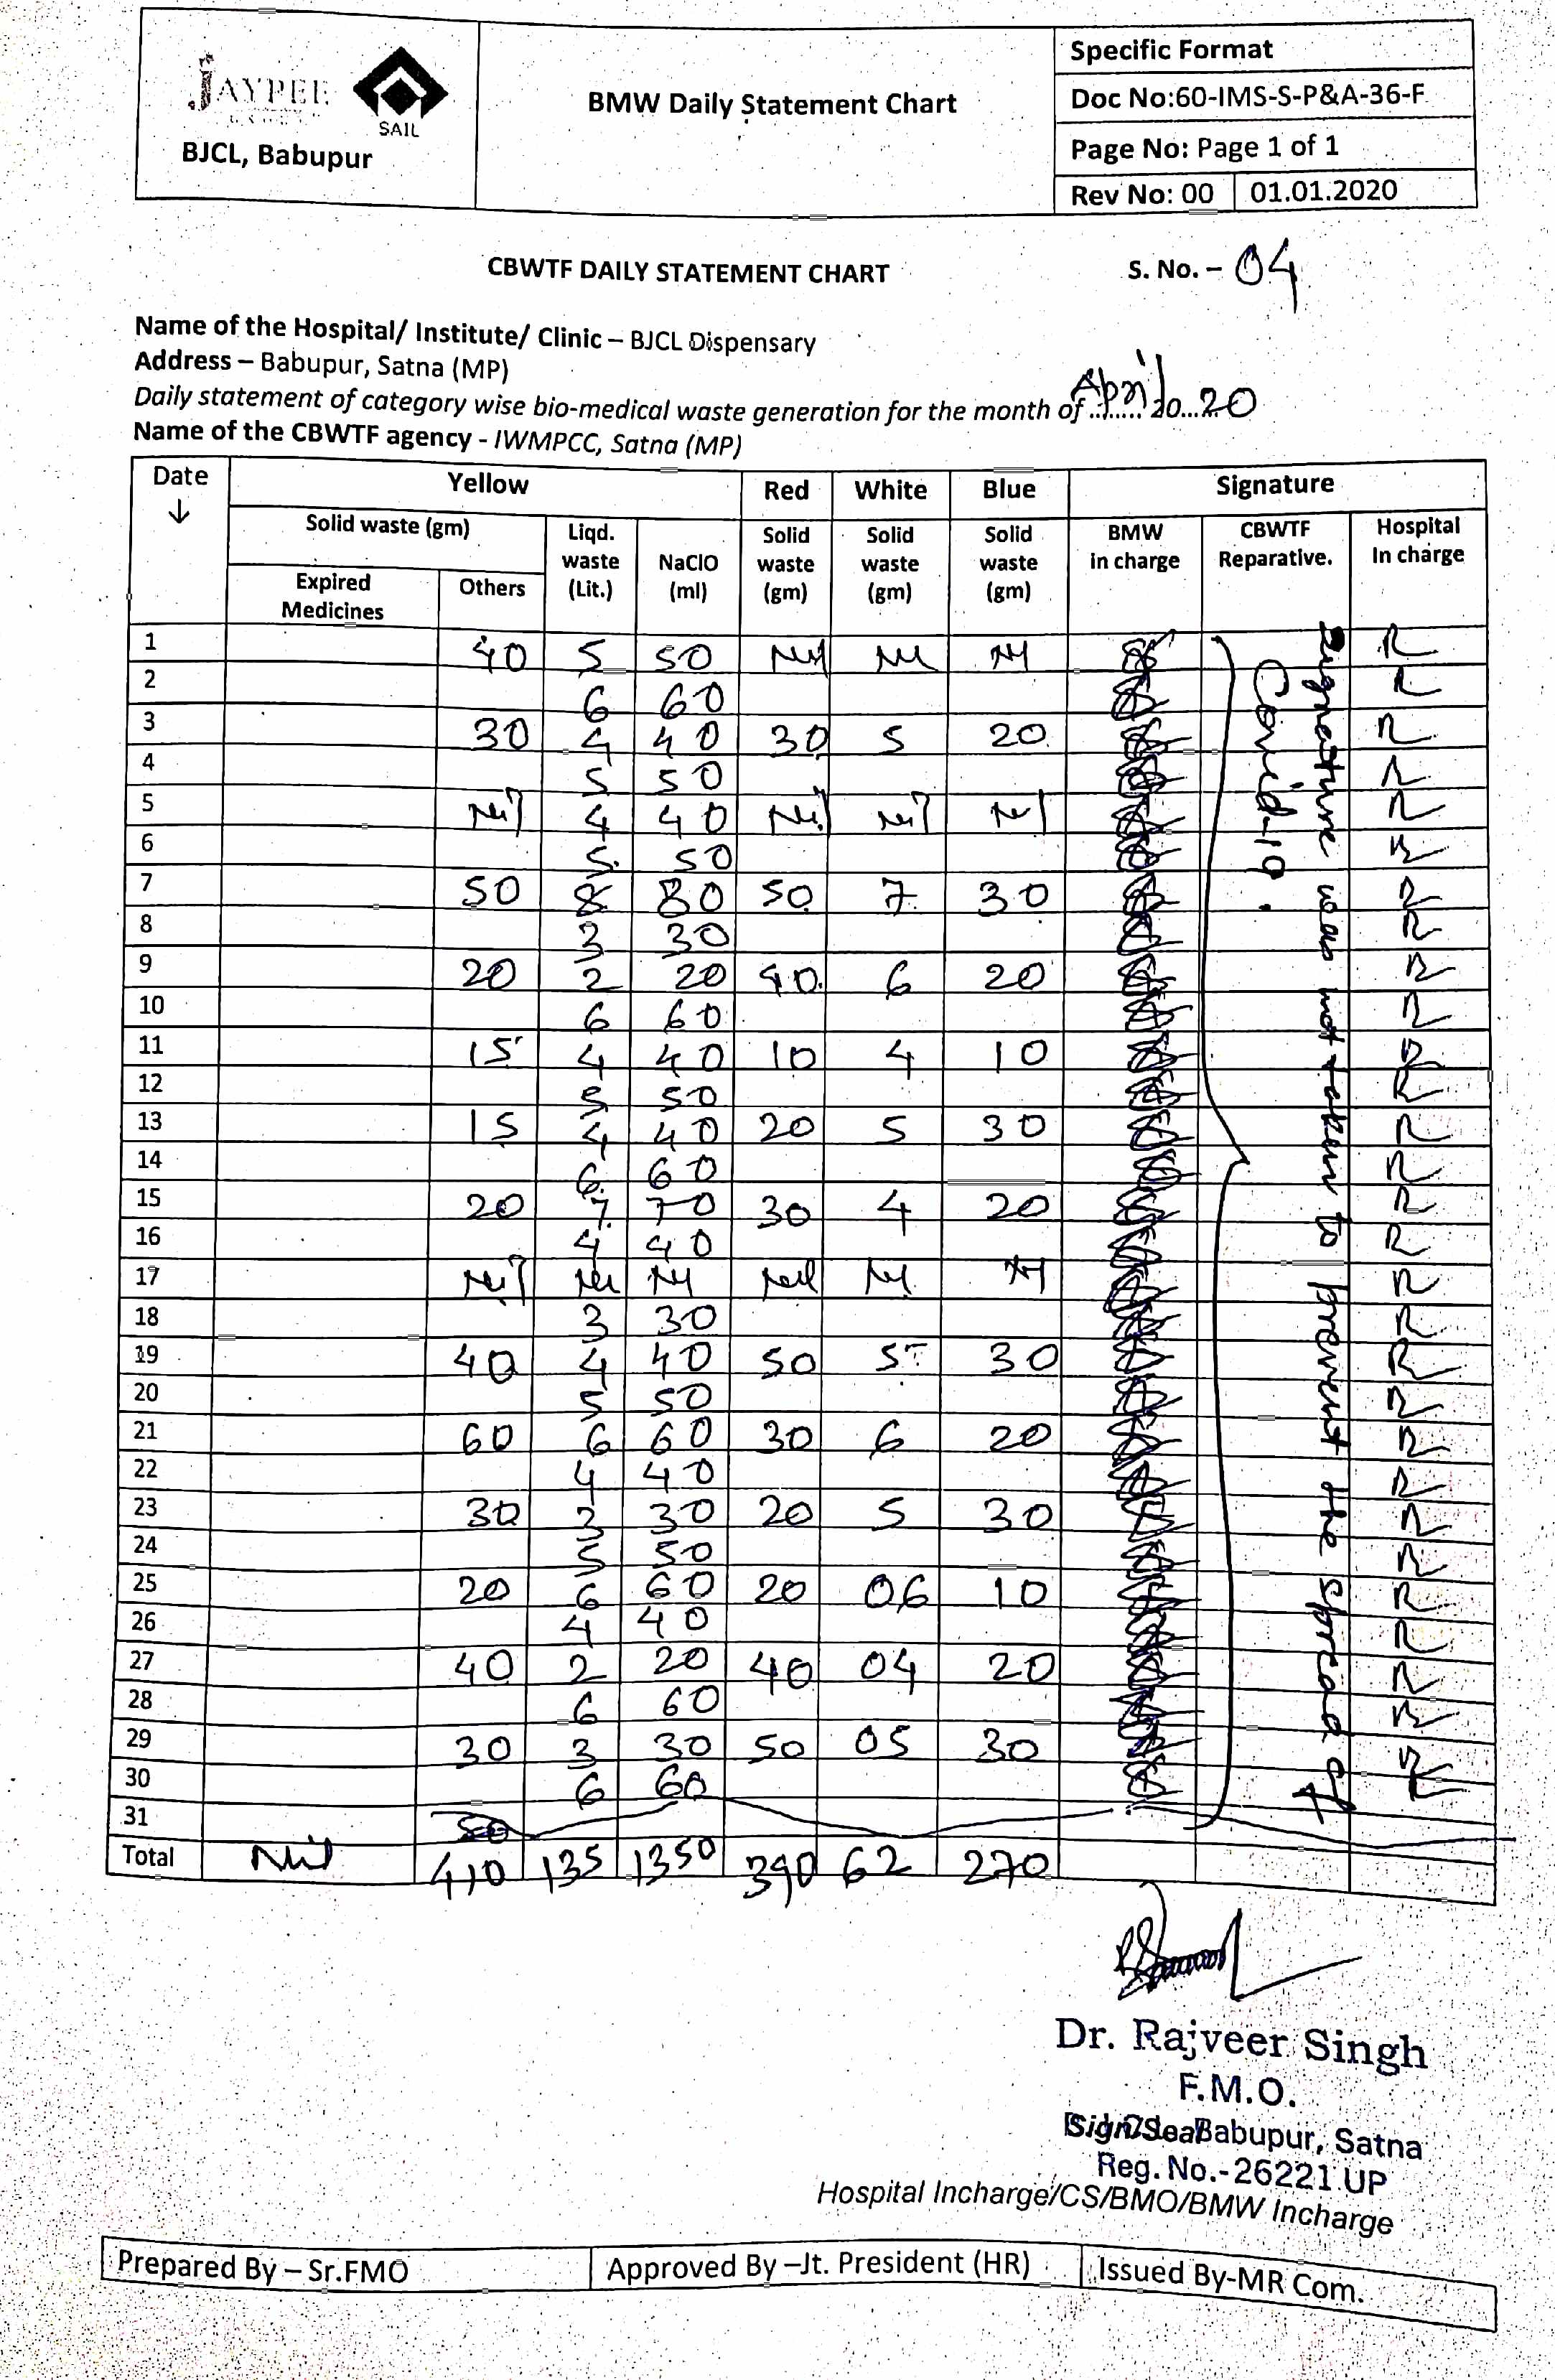 JAYPEE
GROUP
SAIL
BJCL, Babupur
BMW Daily Statement Chart
Specific Format
Doc No:60-IMS-S-P&A-36-F
Page No: Page 1 of 1
Rev No: 00 01.01.2020
CBWTF DAILY STATEMENT CHART
S. No. - 04
Name of the Hospital/ Institute/ Clinic – BJCL Dispensary
Address – Babupur, Satna (MP)
Daily statement of category wise bio-medical waste generation for the month of April 2020
Name of the CBWTF agency - IWMPCC, Satna (MP)
Date ↓ Yellow Red White Blue Signature
Solid waste (gm) Liqd. waste (Lit.) NaClO (ml) Solid waste (gm) Solid waste (gm) Solid waste (gm) BMW in charge CBWTF Reparative. Hospital In charge
Expired Medicines Others
1 40 5 50 Nil Nil Nil R
2 6 60 R
3 30 4 40 30 5 20 R
4 5 50 R
5 Nil 4 40 Nil Nil Nil R
6 5 50 R
7 50 8 80 50 7 30 R
8 3 30 R
9 20 2 20 40 6 20 R
10 6 60 R
11 15 4 40 10 4 10 R
12 5 50 R
13 15 4 40 20 5 30 R
14 6 60 R
15 20 7 70 30 4 20 R
16 4 40 R
17 Nil Nil Nil Nil Nil Nil R
18 3 30 R
19 40 4 40 50 5 30 R
20 5 50 R
21 60 6 60 30 6 20 R
22 4 40 R
23 30 3 30 20 5 30 R
24 5 50 R
25 20 6 60 20 06 10 R
26 4 40 R
27 40 2 20 40 04 20 R
28 6 60 R
29 30 3 30 50 05 30 R
30 6 60 R
31 50
Total Nil 410 135 1350 390 62 270
Signature was not taken to prevent the spread of
Covid-19.
Dr. Rajveer Singh
F.M.O.
Sign/Seal Babupur, Satna
Reg. No.-26221 UP
Hospital Incharge/CS/BMO/BMW Incharge
Prepared By – Sr.FMO
Approved By –Jt. President (HR)
Issued By-MR Com.